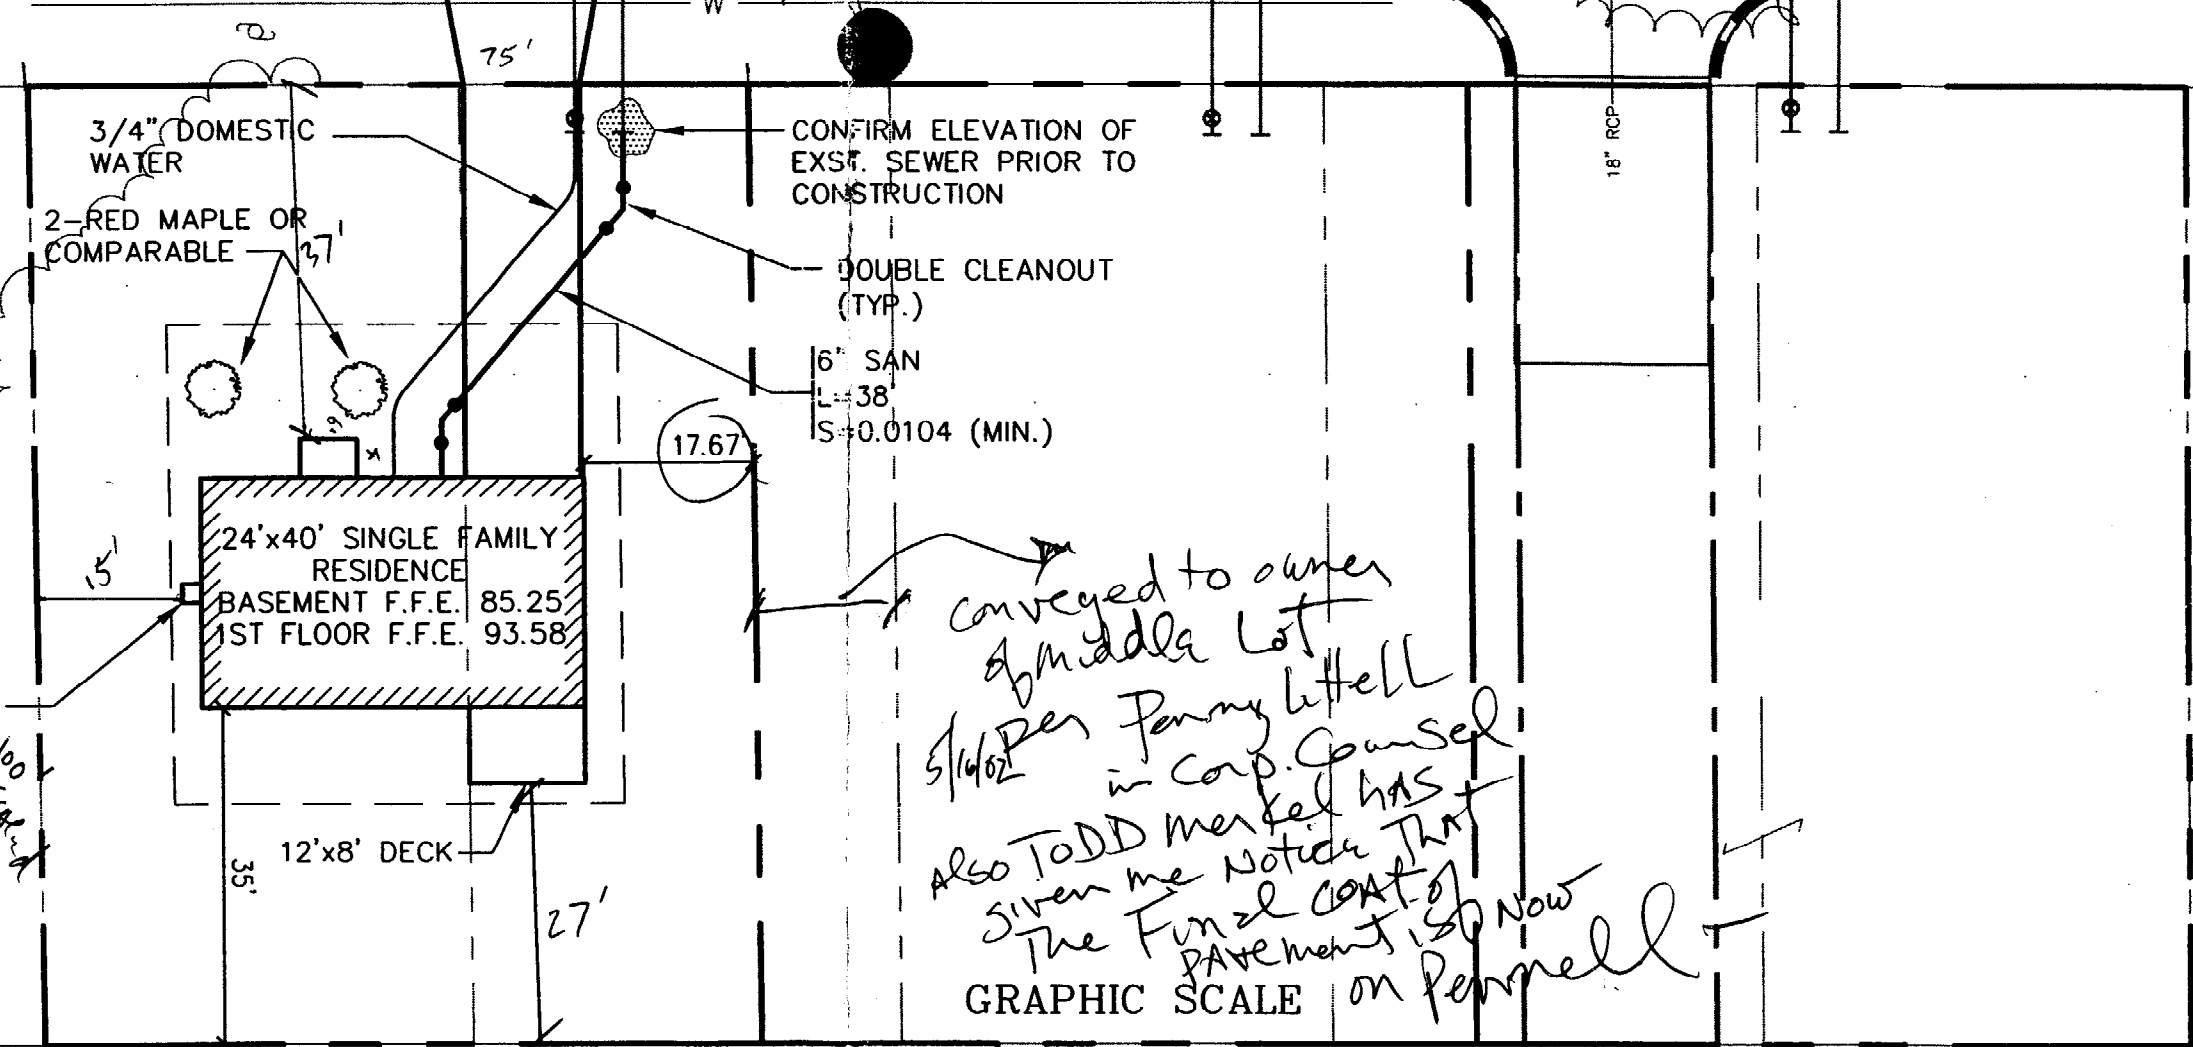 W
75'
3/4" DOMESTIC
WATER
2-RED MAPLE OR
COMPARABLE
37'
CONFIRM ELEVATION OF
EXST. SEWER PRIOR TO
CONSTRUCTION
18" RCP
DOUBLE CLEANOUT
(TYP.)
6" SAN
L=38'
S=0.0104 (MIN.)
6'
17.67'
24'x40' SINGLE FAMILY
RESIDENCE
BASEMENT F.F.E. 85.25
1ST FLOOR F.F.E. 93.58
15'
12'x8' DECK
35'
27'
conveyed to owner
of middle Lot
5/16/02 per Penny Littell
in Corp. Counsel
Also TODD Merkel HAS
given me Notice That
The Final COAT of
PAVEment is Now
on Pennell
GRAPHIC SCALE